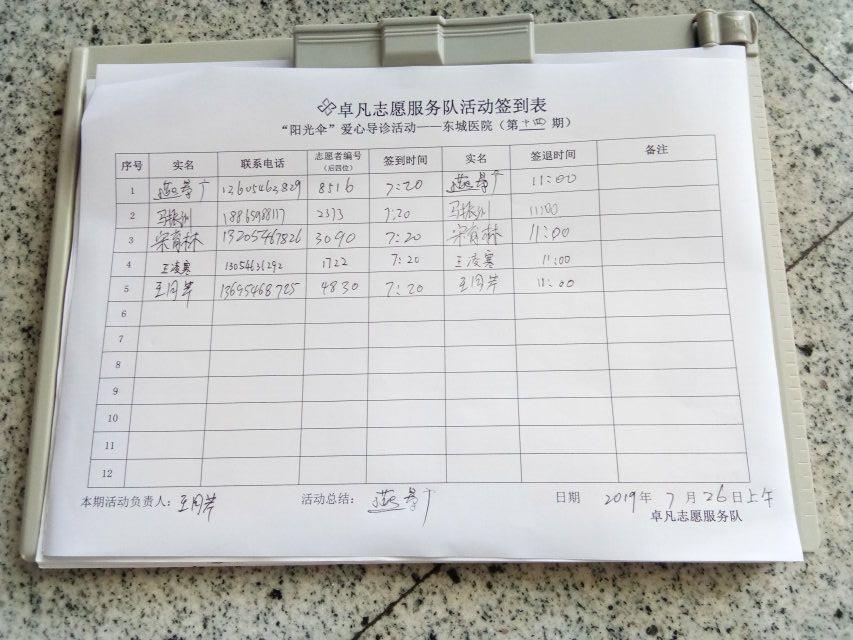 卓凡志愿服务队活动签到表
“阳光伞”爱心导诊活动——东城医院（第十四期）
序号 实名 联系电话 志愿者编号（后四位） 签到时间 实名 签退时间 备注
1 12605463829 8516 7:20 11:00
2 马振州 18865988117 2373 7:20 马振州 11:00
3 宋育林 13205467826 3090 7:20 宋育林 11:00
4 王凌寒 13054631292 1722 7:20 王凌寒 11:00
5 王同芹 13695468725 4830 7:20 王同芹 11:00
6
7
8
9
10
11
12
本期活动负责人：王同芹 活动总结： 日期 2019年7月26日上午
卓凡志愿服务队